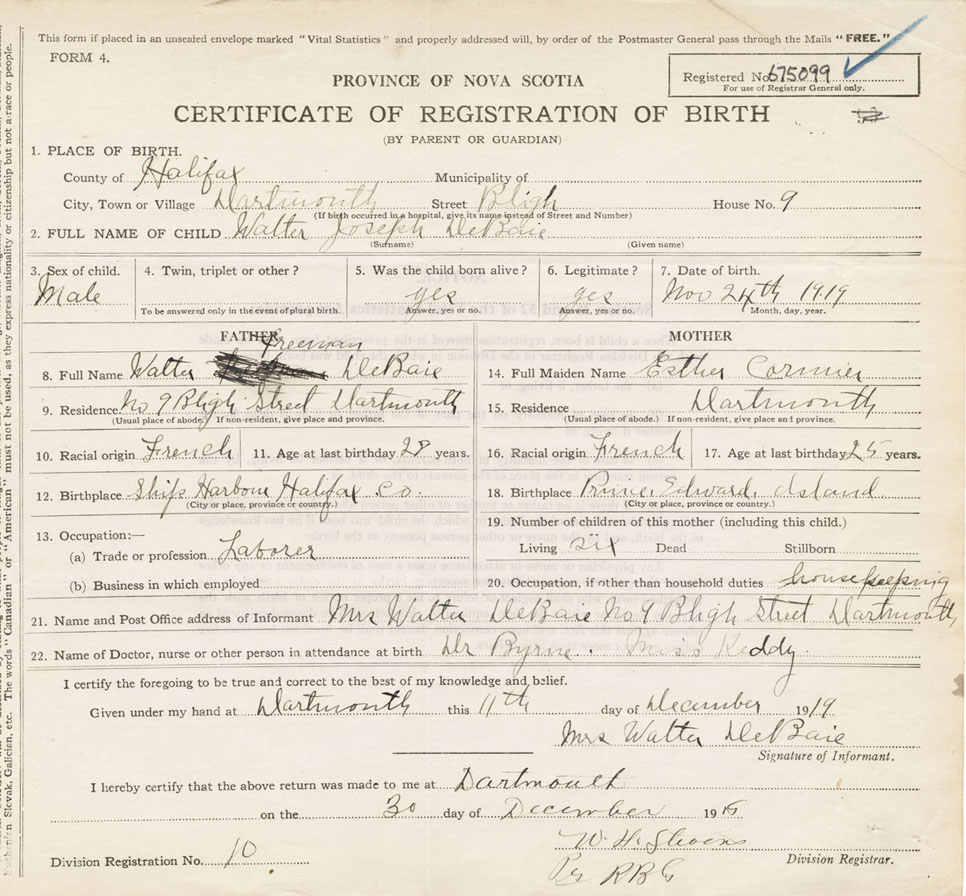 This form if placed in an unsealed envelope marked "Vital Statistics" and properly addressed will, by order of the Postmaster General pass through the Mails "FREE."
FORM 4.
Registered No. 675099
For use of Registrar General only.
PROVINCE OF NOVA SCOTIA
CERTIFICATE OF REGISTRATION OF BIRTH
(BY PARENT OR GUARDIAN)
1. PLACE OF BIRTH.
County of Halifax Municipality of
City, Town or Village Dartmouth Street Bligh House No. 9
(If birth occurred in a hospital, give its name instead of Street and Number)
2. FULL NAME OF CHILD Walter Joseph DeBaie
(Surname) (Given name)
3. Sex of child. 4. Twin, triplet or other? 5. Was the child born alive? 6. Legitimate? 7. Date of birth.
Male yes yes Nov 24th 1919
To be answered only in the event of plural birth. Answer, yes or no. Answer, yes or no. Month, day, year.
FATHER
Freeman
8. Full Name Walter DeBaie
9. Residence No 9 Bligh Street Dartmouth
(Usual place of abode.) If non-resident, give place and province.
10. Racial origin French 11. Age at last birthday 28 years.
12. Birthplace Ship Harbour Halifax Co.
(City or place, province or country.)
13. Occupation:—
(a) Trade or profession Laborer
(b) Business in which employed
MOTHER
14. Full Maiden Name Esther Cormier
15. Residence Dartmouth
(Usual place of abode.) If non-resident, give place and province.
16. Racial origin French 17. Age at last birthday 25 years.
18. Birthplace Prince Edward Island
(City or place, province or country.)
19. Number of children of this mother (including this child.)
Living six Dead Stillborn
20. Occupation, if other than household duties housekeeping
21. Name and Post Office address of Informant Mrs Walter DeBaie No 9 Bligh Street Dartmouth
22. Name of Doctor, nurse or other person in attendance at birth Dr Byrne. Miss Keddy
I certify the foregoing to be true and correct to the best of my knowledge and belief.
Given under my hand at Dartmouth this 11th day of December 1919
Mrs Walter DeBaie
Signature of Informant.
I hereby certify that the above return was made to me at Dartmouth
on the 30 day of December 191
W. H. Stevens
Division Registrar.
Per RBG
Division Registration No. 10
Slovak, Galician, etc. The words "Canadian" or "American" must not be used, as they express nationality or citizenship but not a race or people.